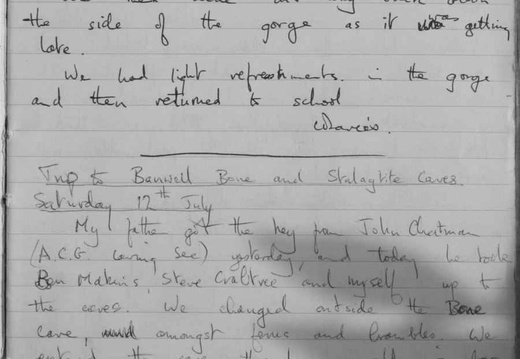 the side of the gorge as it was getting
late.
We had light refreshments. in the gorge
and then returned to school
Trip to Banwell Bone and Stalagtite Caves.
Saturday 12th July
My father got the key from John Chatman
(A.C.G caving sec) yesterday, and today he took
Ben Makins, Steve Crabtree and myself up to
the caves. We changed outside the Bone
cave, amongst ferns and brambles. We
the cave